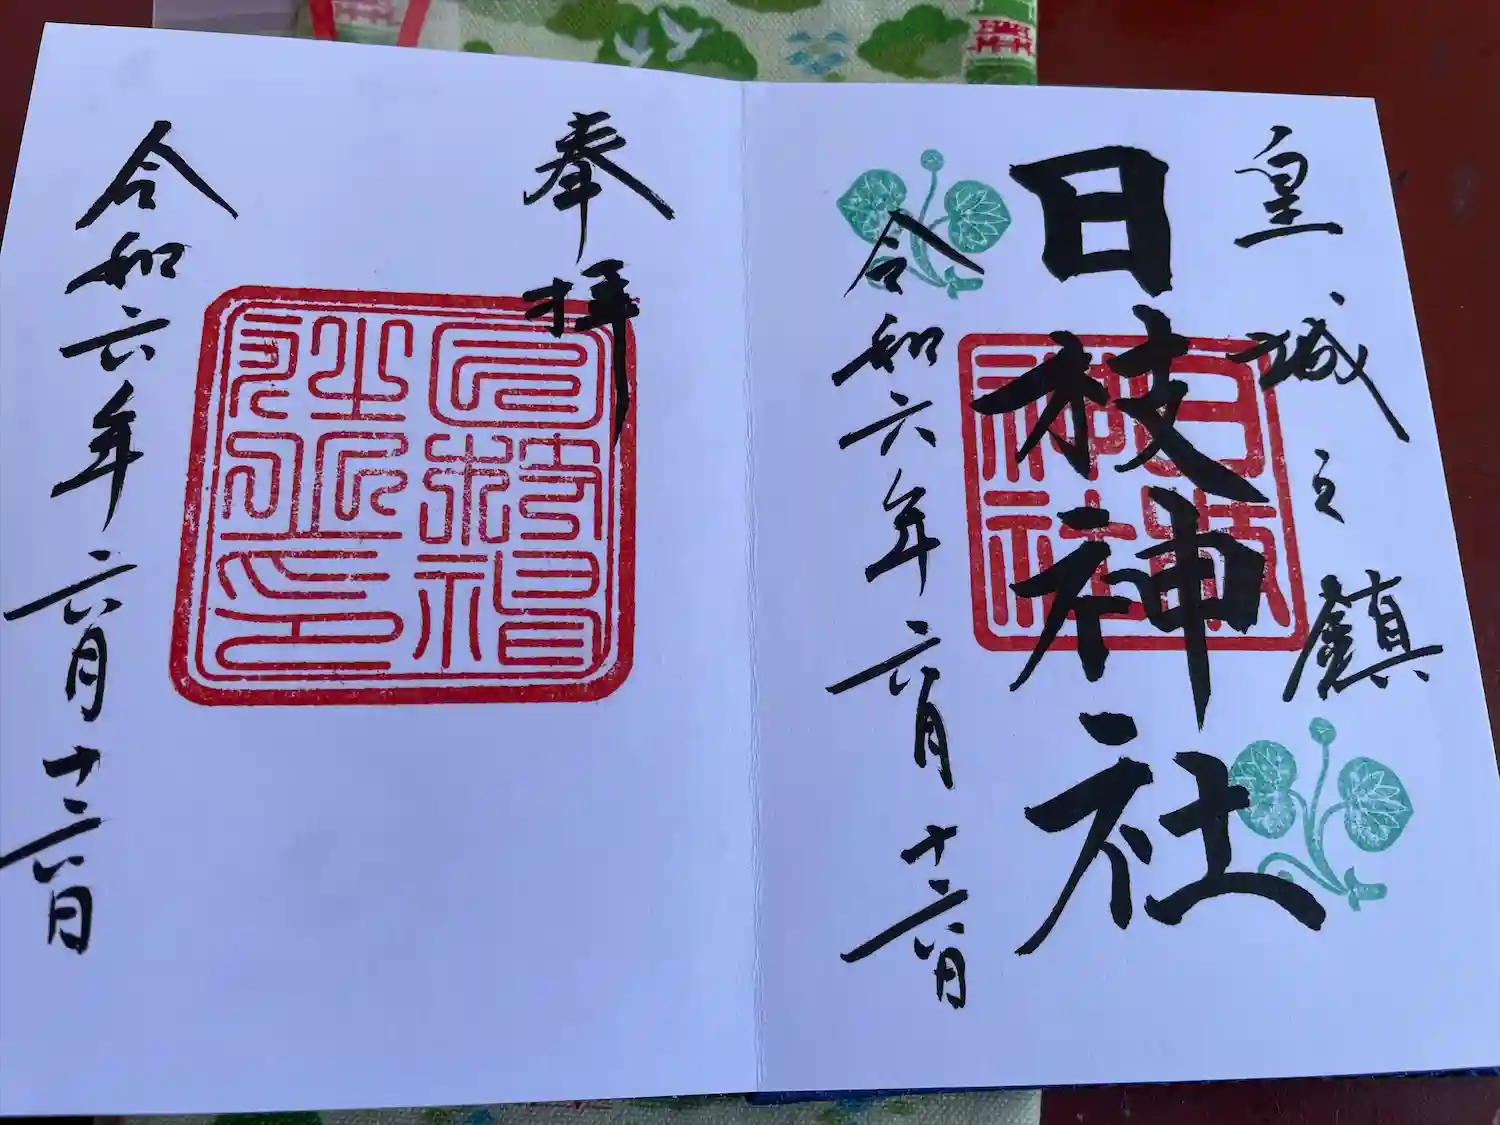 皇城之鎮
日枝神社
日枝
神社
令和六年六月十六日
奉拝
令和六年六月十六日